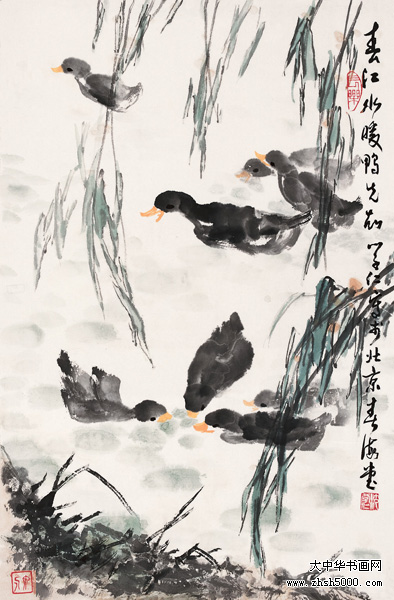 春江水暖鸭先知 写于北京春海堂
大中华书画网
www.zhsh5000.com